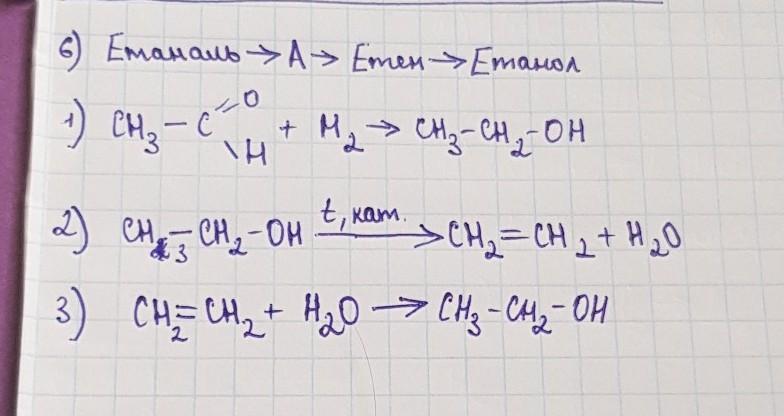 б) Етаналь → А → Етен → Етанол
1) CH₃ – C =O \H + H₂ → CH₃–CH₂–OH
2) CH₃–CH₂–OH t, кат. → CH₂=CH₂ + H₂O
3) CH₂=CH₂ + H₂O → CH₃–CH₂–OH